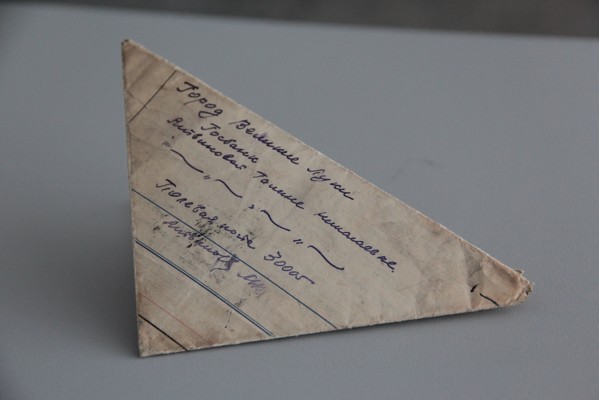 Город Великие Луки
Госбанк
Литвиновой Галине николаевне.
" ~ " ~ " ~ " ~
Полевая почта 30005
Литвинову